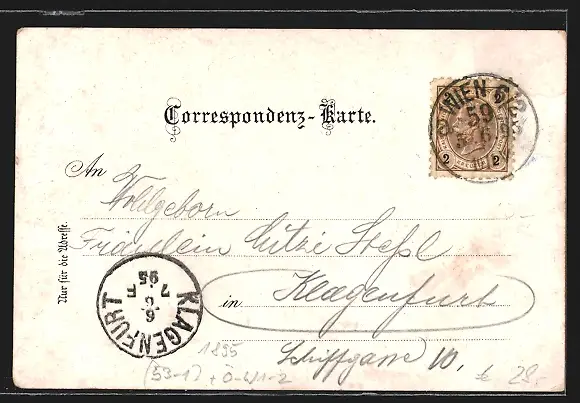 Correspondenz-Karte.
WIEN 6/2
59
5 6
95
2 2
An
Wohlgeborn
Fräulein Litzi Steßl
in Klagenfurt
Schiffgasse 10.
Nur für die Adresse.
KLAGENFURT
6. 6
7 F
95
1895
(53-1) + Ö-W1-2
€ 29,-